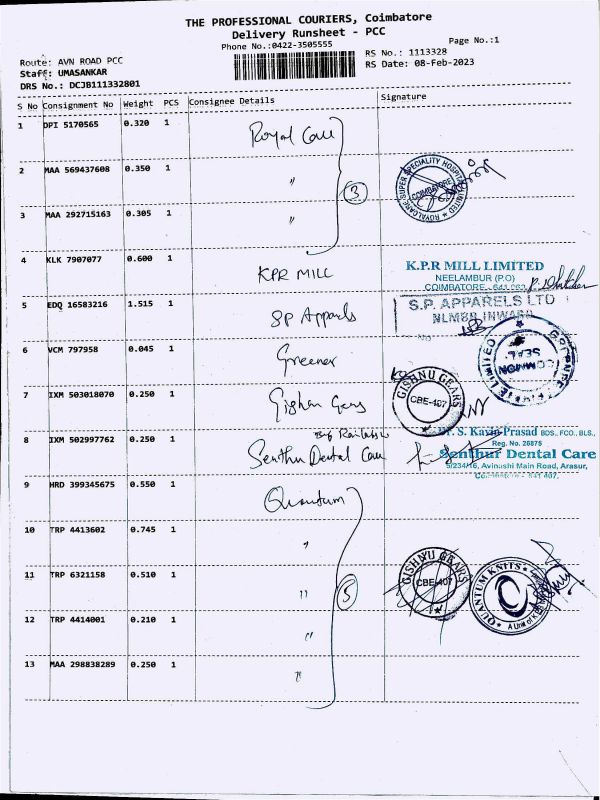 THE PROFESSIONAL COURIERS, Coimbatore
Delivery Runsheet - PCC
Phone No.:0422-3505555
Page No.:1
Route: AVN ROAD PCC
RS No.: 1113328
Staff: UMASANKAR
RS Date: 08-Feb-2023
DRS No.: DCJB111332801
S No Consignment No Weight PCS Consignee Details Signature
1 DPI 5170565 0.320 1 Royal Care
2 MAA 569437608 0.350 1 "
3
ROYALCARE SUPER SPECIALITY HOSPITAL LIMITED
COIMBATORE
3 MAA 292715163 0.305 1 "
4 KLK 7907077 0.600 1 KPR MILL
K.P.R MILL LIMITED
NEELAMBUR (P.O)
COIMBATORE - 641 062
5 EDQ 16583216 1.515 1 SP Apparels
S.P. APPARELS LTD
NLMBR INWARD
No
6 VCM 797958 0.045 1 Greener
COMMON SEAL
LIMITED
7 IXM 503018070 0.250 1 Gishnu Gears
GISHNU GEARS
CBE-407
8 IXM 502997762 0.250 1 Senthur Dental Care
Dr. S. Kavin Prasad BDS., FCO., BLS.,
Reg. No. 26875
Senthur Dental Care
5/234/16, Avinashi Main Road, Arasur,
Coimbatore - 641 407.
9 HRD 399345675 0.550 1 Quantum
10 TRP 4413602 0.745 1 "
11 TRP 6321158 0.510 1 "
5
GISHNU GEARS
CBE-407
QUANTUM KNITS
A Unit of K
12 TRP 4414001 0.210 1 "
13 MAA 298838289 0.250 1 "